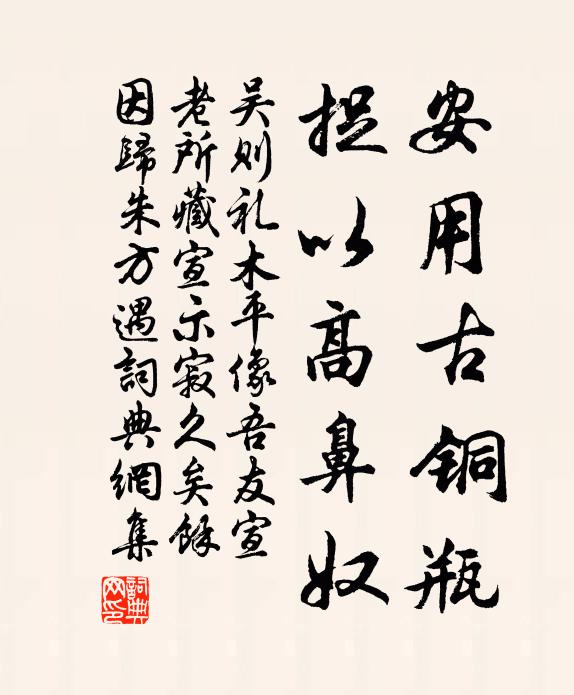 安用古铜瓶
捉以高鼻奴
吴则礼木平像吾友宣
老所藏宣示寂久矣馀
因歸朱方遇詞典網集
詞典網印